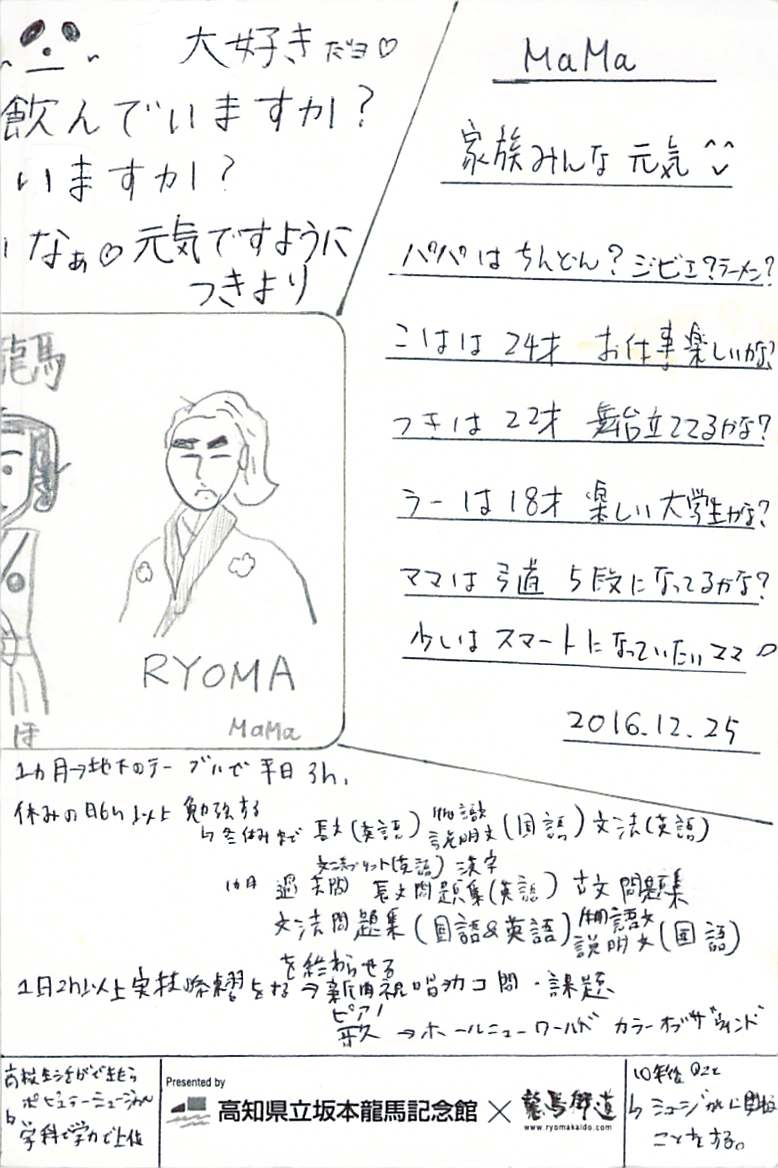 大好きだヨ♡
飲んでいますか?
いますか?
なぁ♡元気ですように
つきより
MaMa
家族みんな 元気
パパは ちんどん?ジビエ?ラーメン?
こはは 24才 お仕事楽しいかな?
つきは 22才 舞台立ててるかな?
ラーは 18才 楽しい大学生かな?
ママは 弓道 5段になってるかな?
少しは スマートになっていたいママ
2016.12.25
龍馬
RYOMA
ほ
MaMa
1カ月→地下のテーブルで 平日 3h,
休みの日6h以上 勉強する
↳冬休みまで 長文(英語) 物語文 説明文(国語) 文法(英語)
文法プリント(英語) 漢字
1カ月 過去問 長文問題集(英語) 古文問題集
文法問題集(国語&英語) 物語文 説明文(国語)
を終わらせる
1日2h以上実技練習をな→新曲視唱 コ 問・課題
ピアノ
→ホールニューワールド カラーオブザウィンド
高校生活ができたら
ポピュラーミュージック
↳学科で学力で上位
Presented by
高知県立坂本龍馬記念館 × 龍馬街道
www.ryomakaido.com
10年後
↳ミュージカルに
ことをする。